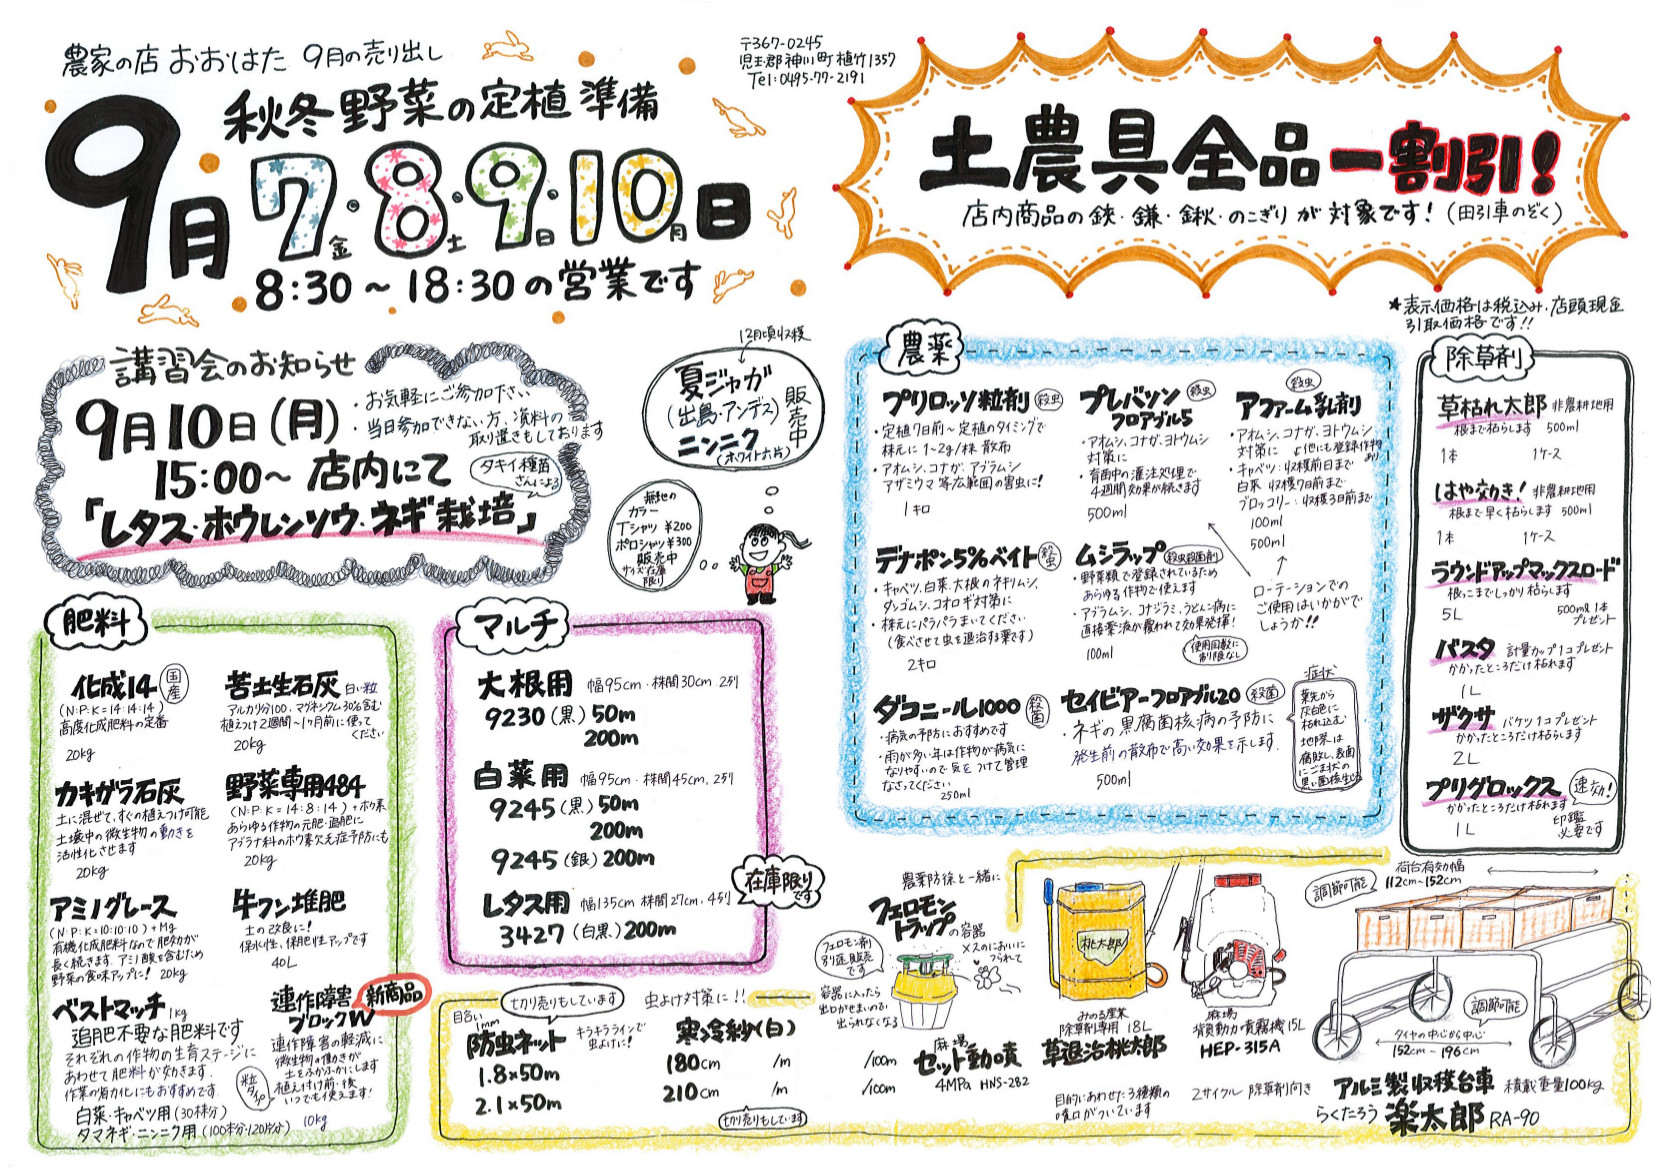 農家の店 おおはた 9月の売り出し
秋冬野菜の定植準備
9月7金・8土・9日・10月日
8:30〜18:30の営業です
〒367-0245
児玉郡神川町植竹1357
Tel:0495-77-2191
土農具全品一割引!
店内商品の鋏・鎌・鍬・のこぎりが対象です!(田引車のぞく)
★表示価格は税込み・店頭現金
引取価格です!!
講習会のお知らせ
9月10日(月)
・お気軽にご参加下さい
・当日参加できない方、資料の
取り置きもしております
15:00〜店内にて
タキイ種苗
さんによる
「レタス・ホウレンソウ・ネギ栽培」
12月頃収穫
夏ジャガ
(出島・アンデス)
ニンニク
(ホワイト六片)
販売中
無地の
カラー
Tシャツ ¥200
ポロシャツ¥300
販売中
サイズ在庫
限り
肥料
化成14
国産
(N:P:K=14:14:14)
高度化成肥料の定番
20kg
苦土生石灰 白い粒
アルカリ分100、マグネシウム30%含む
植えつけ2週間〜1ヶ月前に使って
ください
20kg
カキガラ石灰
土に混ぜて、すぐの植えつけ可能
土壌中の微生物の動きを
活性化させます
20kg
野菜専用484
(N:P:K=14:8:14)+ホウ素
あらゆる作物の元肥・追肥に
アブラナ科のホウ素欠乏症予防にも
20kg
アミノグレース
(N:P:K=10:10:10)+Mg
有機化成肥料なので肥効が
長く続きます アミノ酸を含むため
野菜の食味アップに! 20kg
牛フン堆肥
土の改良に!
保水性、保肥性アップです
40L
ベストマッチ 1kg
追肥不要な肥料です
それぞれの作物の生育ステージに
あわせて肥料が効きます
作業の省力化にもおすすめです
白菜・キャベツ用(30株分)
タマネギ・ニンニク用(100本分・120片分)
連作障害
ブロックW
新商品
連作障害の軽減に
微生物の働きが
土をふかふかにします
植え付け前・後
いつでも使えます!
粒タイプ
10kg
マルチ
大根用 幅95cm・株間30cm 2列
9230(黒)50m
200m
白菜用 幅95cm・株間45cm、2列
9245(黒)50m
200m
9245(銀)200m
レタス用 幅135cm 株間27cm、4列
3427(白黒)200m
在庫限り
です
農薬
プリロッソ粒剤 殺虫
・定植7日前〜定植のタイミングで
株元に1〜2g/株 散布
・アオムシ、コナガ、アブラムシ
アザミウマ等広範囲の害虫に!
1キロ
プレバソン
フロアブル5
殺虫
・アオムシ、コナガ、ヨトウムシ
対策に
・育苗中の灌注処理で
4週間効果が続きます
500ml
アファーム乳剤
殺虫
・アオムシ、コナガ、ヨトウムシ
対策に 他にも登録作物あり
・キャベツ:収穫前日まで
白菜 収穫7日前まで
ブロッコリー:収穫3日前まで
100ml
500ml
デナポン5%ベイト 殺虫
・キャベツ、白菜、大根のネキリムシ、
ダンゴムシ、コオロギ対策に
・株元にパラパラまいてください
(食べさせて虫を退治する薬です)
2キロ
ムシラップ 殺虫殺菌剤
・野菜類で登録されているため
あらゆる作物で使えます
・アブラムシ、コナジラミ、うどんこ病に
直接薬液が覆われて効果発揮!
100ml
使用回数に
制限なし
ローテーションでの
ご使用はいかがで
しょうか!!
ダコニール1000 殺菌
・病気の予防におすすめです
・雨が多い年は作物が病気に
なりやすいので気をつけて管理
なさってください
250ml
セイビアーフロアブル20 殺菌
・ネギの黒腐菌核病の予防に
発生前の散布で高い効果を示します
500ml
症状
葉先から
灰白色に
枯れ込む
地際は
腐敗し、表面
にごま状の
黒い菌核生じる
除草剤
草枯れ太郎 非農耕地用
根まで枯らします 500ml
1本 1ケース
はや効き! 非農耕地用
根まで早く枯らします 500ml
1本 1ケース
ラウンドアップマックスロード
根っこまでしっかり枯らします
5L
500ml 1本
プレゼント
バスタ 計量カップ1コプレゼント
かかったところだけ枯れます
1L
ザクサ バケツ1コプレゼント
かかったところだけ枯らします
2L
プリグロックス 速効!
かかったところだけ枯れます
1L
印鑑
必要です
目合い
1mm
切り売りもしています
虫よけ対策に!!
防虫ネット
キラキララインで
虫よけに!
1.8×50m
2.1×50m
寒冷紗(白)
180cm /m /100m
210cm /m /100m
切り売りもしています
農薬防除と一緒に
フェロモン
トラップの容器
フェロモン剤
別途販売
です
メスのにおいに
つられて
容器に入ったら
出口がせまいので
出られなくなる
麻場
セット動噴
4MPa HNS-282
桃太郎
みのる産業
除草剤専用 18L
草退治桃太郎
目的にあわせた3種類の
噴口がついています
麻場
背負動力噴霧機15L
HEP-315A
2サイクル 除草剤向き
荷台有効幅
112cm〜152cm
調節可能
調節可能
タイヤの中心から中心
152cm〜196cm
アルミ製収穫台車 積載重量100kg
らくたろう 楽太郎 RA-90